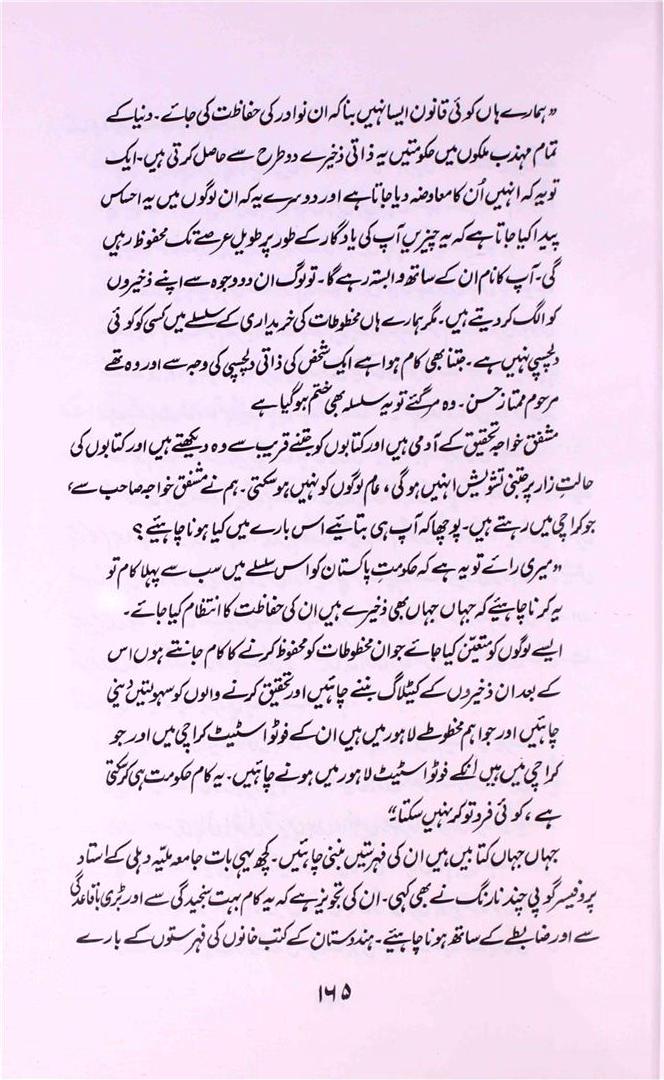 ”ہمارے ہاں کوئی قانون ایسا نہیں بنا کہ ان نوادر کی حفاظت کی جائے۔ دنیا کے
تمام مہذب ملکوں میں حکومتیں یہ ذاتی ذخیرے دو طرح سے حاصل کرتی ہیں۔ ایک
تو یہ کہ انہیں اُن کا معاوضہ دیا جاتا ہے اور دوسرے یہ کہ ان لوگوں میں یہ احساس
پیدا کیا جاتا ہے کہ یہ چیزیں آپ کی یادگار کے طور پر طویل عرصے تک محفوظ رہیں
گی۔ آپ کا نام ان کے ساتھ وابستہ رہے گا۔ تو لوگ ان دو وجوہ سے اپنے ذخیروں
کو الگ کر دیتے ہیں۔ مگر ہمارے ہاں مخطوطات کی خریداری کے سلسلے میں کسی کو کوئی
دلچسپی نہیں ہے۔ جتنا بھی کام ہوا ہے ایک شخص کی ذاتی دلچسپی کی وجہ سے اور وہ تھے
مرحوم ممتاز حسن۔ وہ مر گئے تو یہ سلسلہ بھی ختم ہو گیا ہے
مشفق خواجہ تحقیق کے آدمی ہیں اور کتابوں کو جتنے قریب سے وہ دیکھتے ہیں اور کتابوں کی
حالتِ زار پر جتنی تشویش انہیں ہو گی، عام لوگوں کو نہیں ہو سکتی۔ ہم نے مشفق خواجہ صاحب سے،
جو کراچی میں رہتے ہیں۔ پوچھا کہ آپ ہی بتائیے اس بارے میں کیا ہونا چاہئیے؟
”میری رائے تو یہ ہے کہ حکومتِ پاکستان کو اس سلسلے میں سب سے پہلا کام تو
یہ کرنا چاہئیے کہ جہاں جہاں بھی ذخیرے ہیں ان کی حفاظت کا انتظام کیا جائے۔
ایسے لوگوں کو متعیّن کیا جائے جو ان مخطوطات کو محفوظ کرنے کا کام جانتے ہوں اس
کے بعد ان ذخیروں کے کیٹلاگ بننے چاہئیں اور تحقیق کرنے والوں کو سہولتیں دینی
چاہئیں اور جو اہم مخطوطے لاہور میں ہیں ان کے فوٹو اسٹیٹ کراچی میں اور جو
کراچی میں ہیں انکے فوٹو اسٹیٹ لاہور میں ہونے چاہئیں۔ یہ کام حکومت ہی کر سکتی
ہے، کوئی فرد تو کر نہیں سکتا“
جہاں جہاں کتابیں ہیں ان کی فہرستیں بننی چاہئیں۔ کچھ یہی بات جامعہ ملیہ دہلی کے استاد
پروفیسر گوپی چند نارنگ نے بھی کہی۔ ان کی تجویز ہے کہ یہ کام بہت سنجیدگی سے اور بڑی باقاعدگی
سے اور ضابطے کے ساتھ ہونا چاہئیے۔ ہندوستان کے کتب خانوں کی فہرستوں کے بارے
۱۶۵